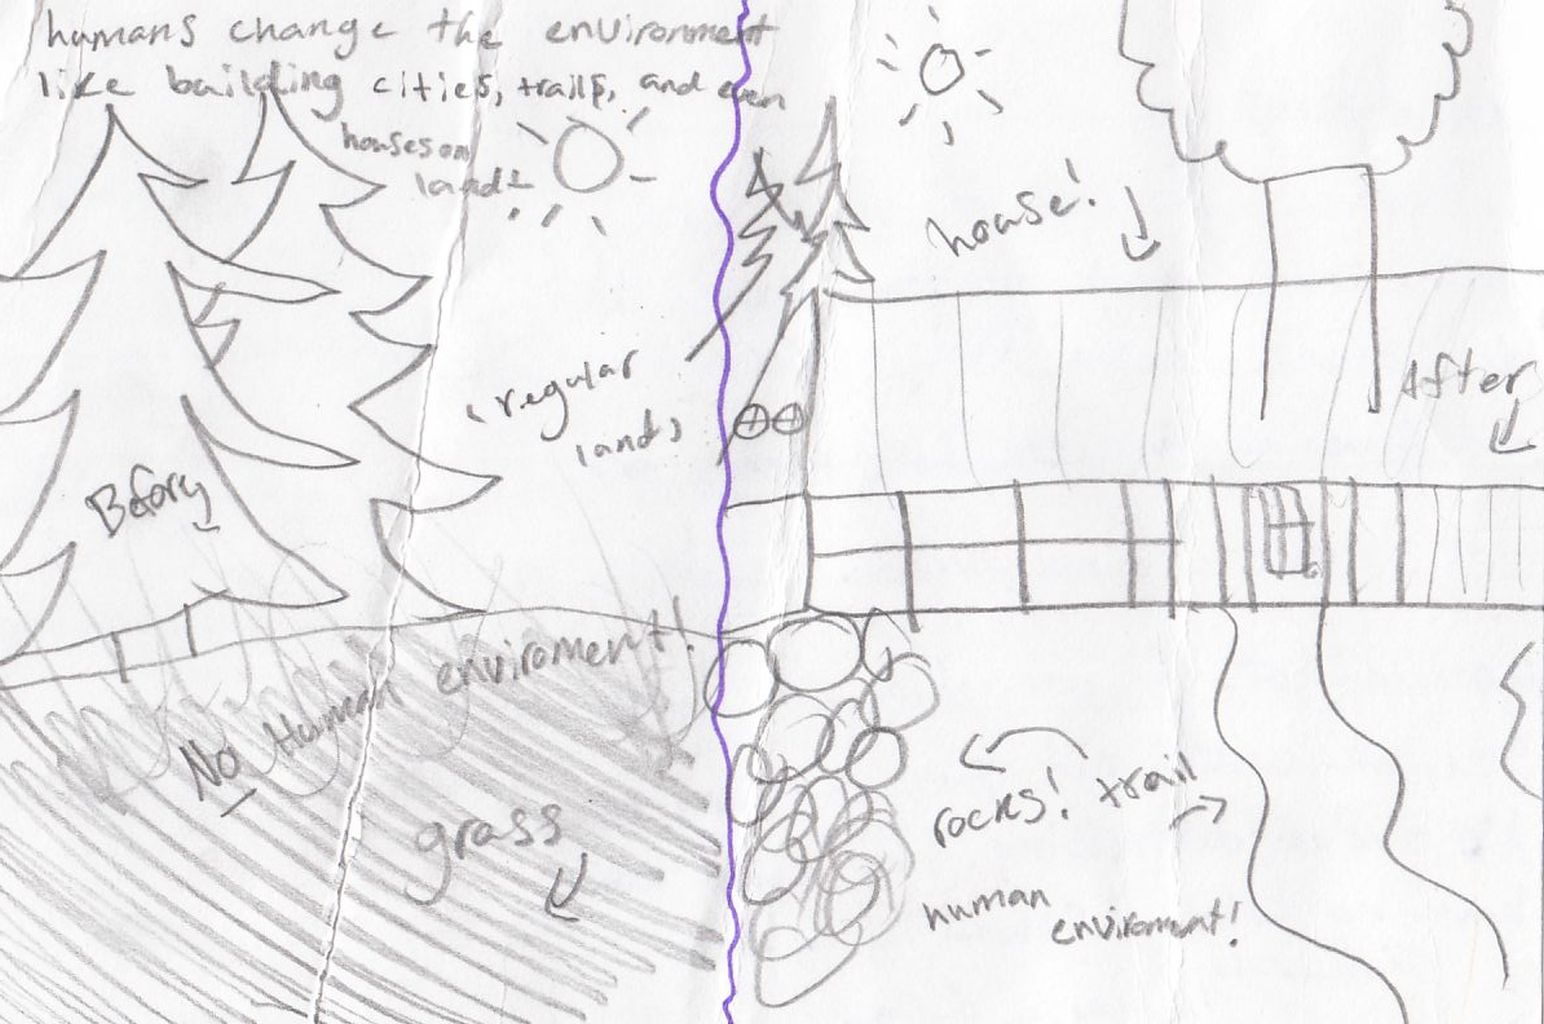 humans change the environment
like building cities, trails, and even
houses on
land!
(regular
land)
Before
No Human enviroment!
grass
house!
After
rocks! trail
human
enviroment!